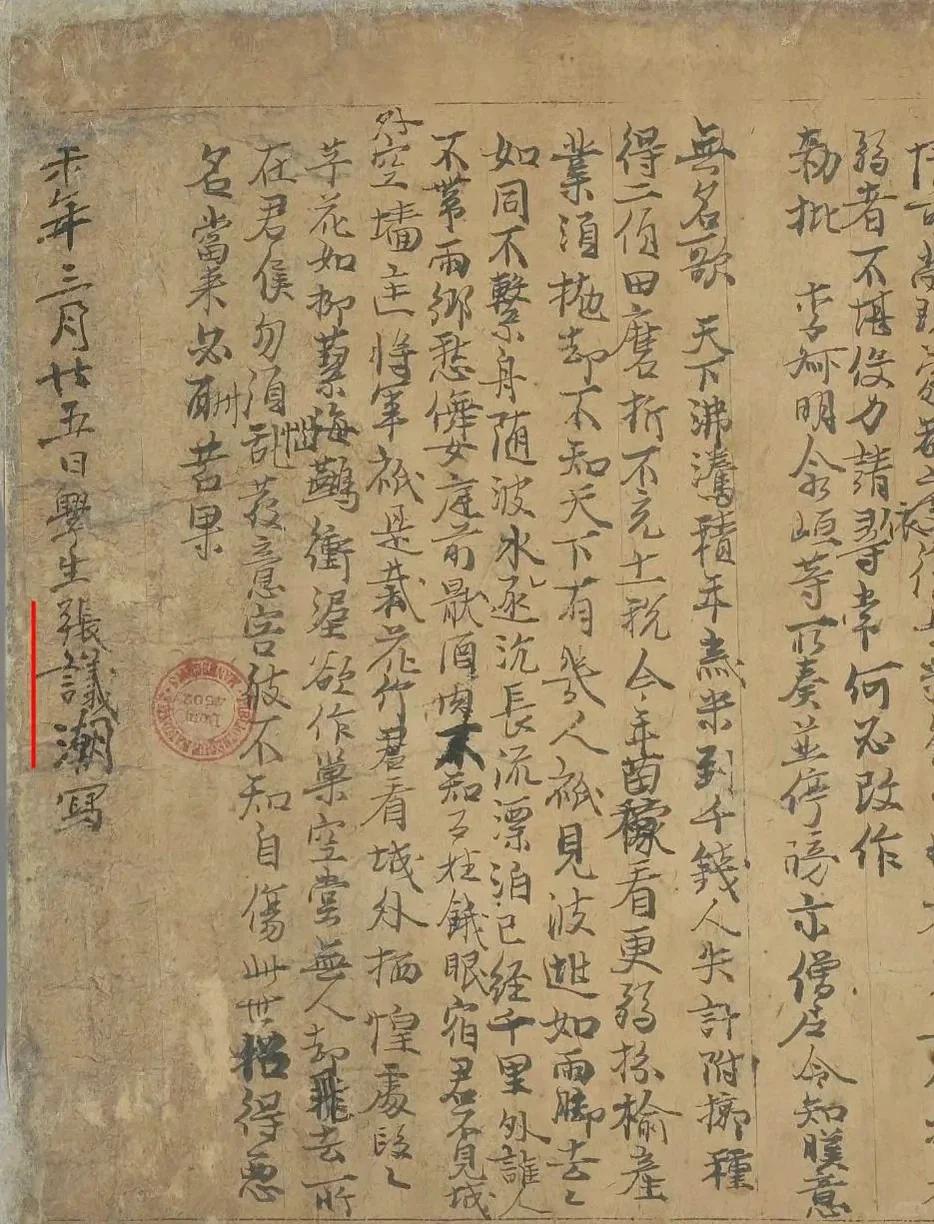 弱者不堪伇力請依尋常何必改作
勅批 李舸明命等所奏並停牓示僧尼令知朕意
無名歌 天下沸騰積年歲米到千錢人失計附郭種
得二頃田磨折不充十一税今年苗稼看更弱枌榆產
業須拋却不知天下有幾人祇見波逃如雨脚去〻
如同不繫舟随波水逐沉長流漂泊已經千里外誰人
不帶兩鄉愁儛女庭前猒酒肉不知百姓餓眠宿君不見城
外空墙匡將軍祇是栽花竹君看城外栖惶處段〻
芋花如柳絮海鷰銜泥欲作巢空堂無人却飛去所
在君侯勿須乱意害彼不知自傷此世招得惡
名當来必酬苦果
未年三月廿五日學生張議潮寫